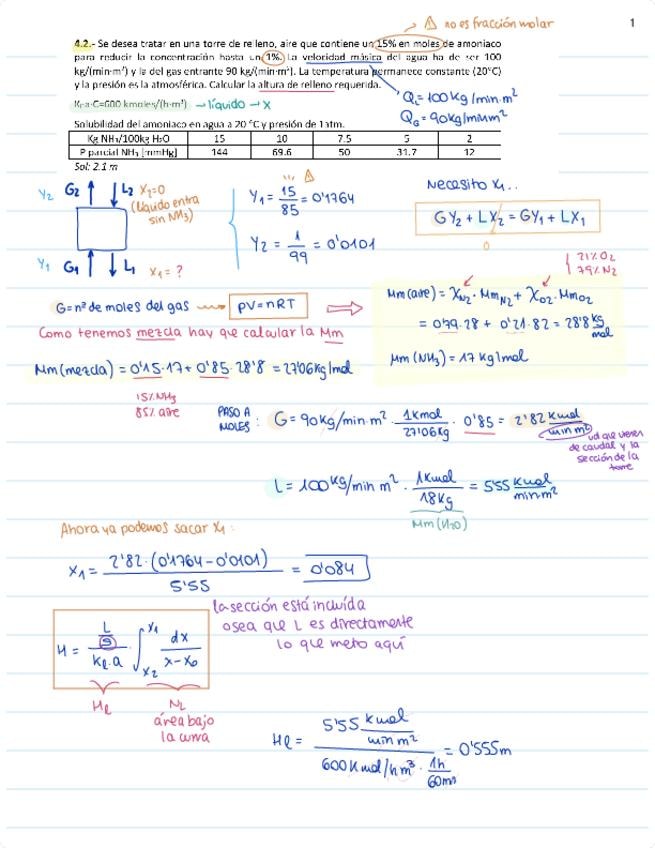 ⚠ no es fracción molar
1
4.2.- Se desea tratar en una torre de relleno, aire que contiene un 15% en moles de amoniaco
para reducir la concentración hasta un 1%. La velocidad másica del agua ha de ser 100
kg/(min·m²) y la del gas entrante 90 kg/(min·m²). La temperatura permanece constante (20°C)
y la presión es la atmosférica. Calcular la altura de relleno requerida.
QL = 100 kg/min·m²
QG = 90 kg/min m²
·a·C=600 kmoles/(h·m³) → líquido → x
Solubilidad del amoniaco en agua a 20 °C y presión de 1 atm.
Kg NH₃/100kg H₂O 15 10 7.5 5 2
P parcial NH₃ [mmHg] 144 69.6 50 31.7 12
Sol: 2.1 m
Y₂ G₂ L₂ X₂=0
(líquido entra
sin NH₃)
Y₁ G₁ L₁ X₁ = ?
⚠
Y₁ = 15/85 = 0'1764
Y₂ = 1/99 = 0'0101
Necesito X₁..
GY₂ + LX₂ = GY₁ + LX₁
0
21% O₂
79% N₂
G = nº de moles del gas → PV = nRT ⇒
Como tenemos mezcla hay que calcular la Mm
Mm (aire) = XN₂ · MmN₂ + XO₂ · MmO₂
= 0'79·28 + 0'21·82 = 28'8 kg/mol
Mm (NH₃) = 17 kg/mol
Mm (mezcla) = 0'15·17 + 0'85·28'8 = 27'06 kg/mol
15% NH₃
85% aire
PASO A
MOLES : G = 90 kg/min·m² · 1kmol/27'06kg · 0'85 = 2'82 kmol/min m²
ud que vienen
de caudal y la
sección de la
torre
L = 100 kg/min m² · 1kmol/18kg = 5'55 kmol/min·m²
Mm (H₂O)
Ahora ya podemos sacar X₁ :
X₁ = 2'82·(0'1764-0'0101)/5'55 = 0'084
la sección está incluída
osea que L es directamente
lo que meto aquí
H = (L/S)/(kl·a) · ∫ X₂ X₁ dx/(x-x₀)
Hl
NL
área bajo
la curva
Hl = (5'55 kmol/min m²)/(600 kmol/h m³ · 1h/60m) = 0'555m